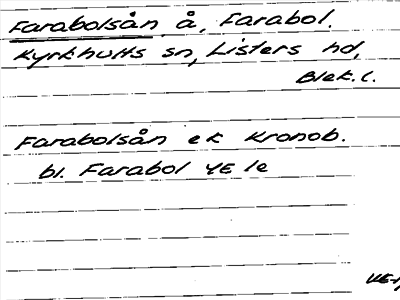 Farabolsån å, Farabol.
Kyrkhults sn, Listers hd,
Blek. l.
Farabolsån ek Kronob.
bl. Farabol YE le